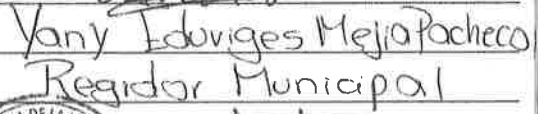 Yany Eduviges Mejia Pacheco
Regidor Municipal